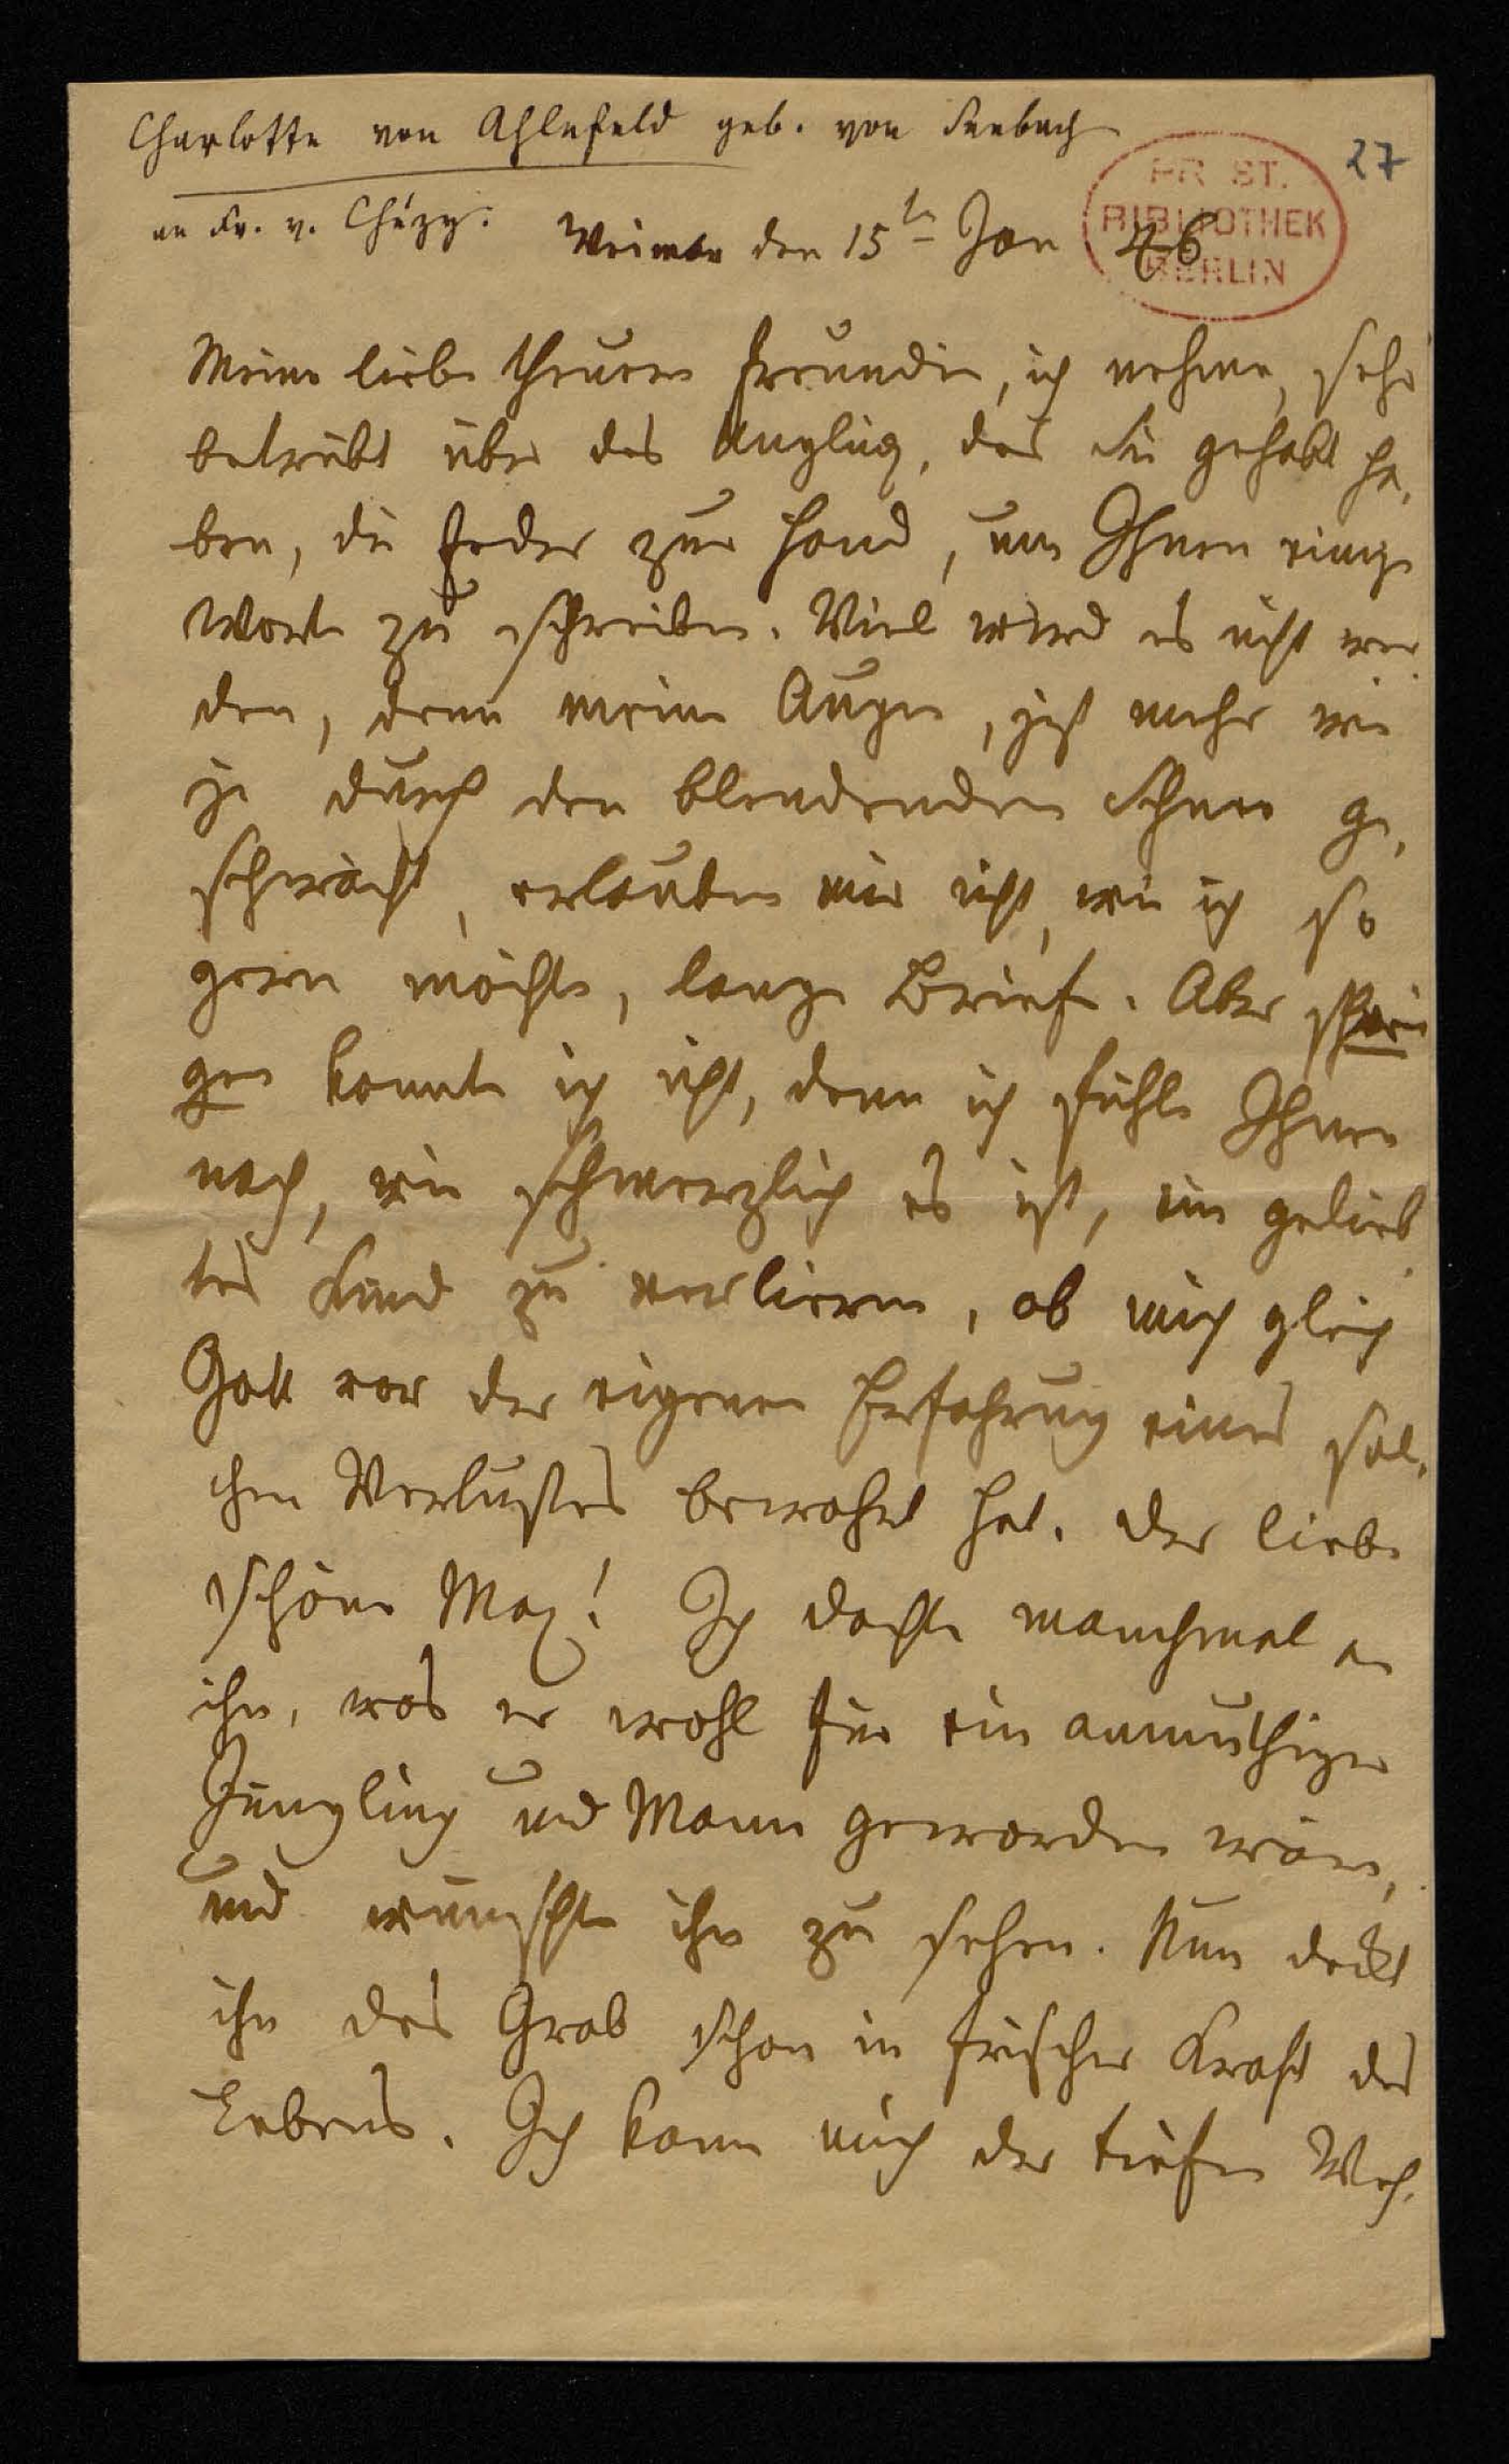 Charlotte von Ahlefeld geb. von Seebach
27
PR. ST.
BIBLIOTHEK
BERLIN
an Fr. v. Chézy.
Weimar den 15ten Jan 46
Meine liebe theuere Freundin, ich nehme, sehr
betrübt über das Unglück, das Sie gehabt ha-
ben, die Feder zur Hand, um Ihnen einige
Worte zu schreiben. Viel wird es nicht wer
den, denn meine Augen, jezt mehr wie
je durch den blendenden Schnee ge-
schwächt, erlauben mir nicht, wie ich so
gern möchte, lange Briefe. Aber schwei
gen konnte ich nicht, denn ich fühle Ihnen
nach, wie schmerzlich es ist, ein gelieb
tes Kind zu verlieren, ob mich gleich
Gott vor der eigenen Erfahrung eines sol-
chen Verlustes bewahrt hat. Der liebe
schöne Max! Ich dachte manchmal an
ihn, was er wohl für ein anmuthiger
Jüngling und Mann geworden wäre,
und wünschte ihn zu sehen. Nun deckt
ihn das Grab schon in frischer Kraft des
Lebens. Ich kann mich der tiefen Weh-